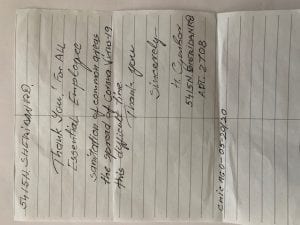 5415 N. SHERIDAN RD
Thank You! For All
Essential Employee
sanitation of common areas
the spread of Corona Virus-19
this difficult time.
Thank you
Sincerely
5415 N. SHERIDAN RD
APT. 2708